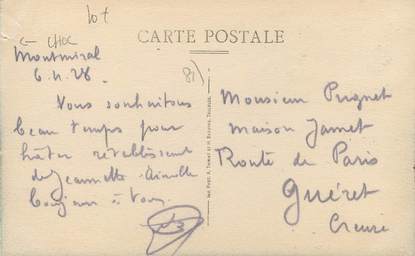 lot
CARTE POSTALE
Montmiral
81)
Vous souhaitons
beau temps pour
hâter
de Jeannette
bonjour à Vous
Monsieur Pugnet
maison Jamet
Route de Paris
Guéret
Creuse